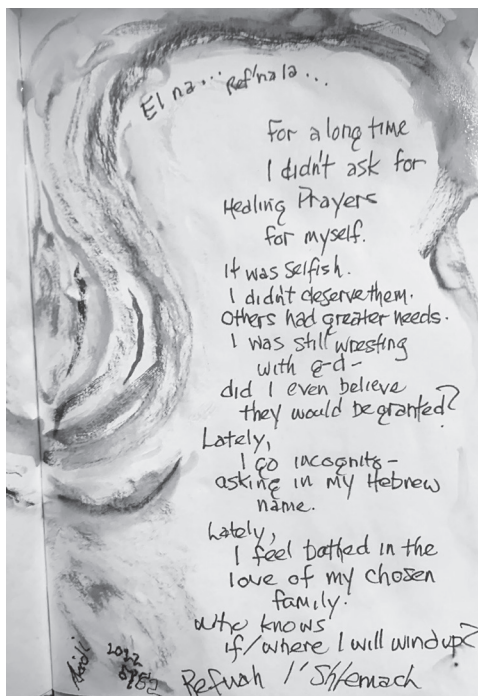 El na... Ref'na la...
For a long time
I didn't ask for
Healing Prayers
for myself.
It was selfish.
I didn't deserve them.
Others had greater needs.
I was still wresting
with g-d-
did I even believe
they would be granted?
Lately,
I go incognito-
asking in my Hebrew
name.
Lately,
I feel bathed in the
love of my chosen
family.
Who knows
if/where I will wind up?
Refuah l'Shlemach
2022